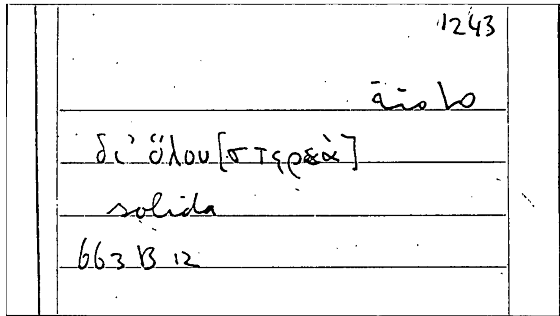 1243
δι' ὅλου [στερεὰ]
solida
663 B 12